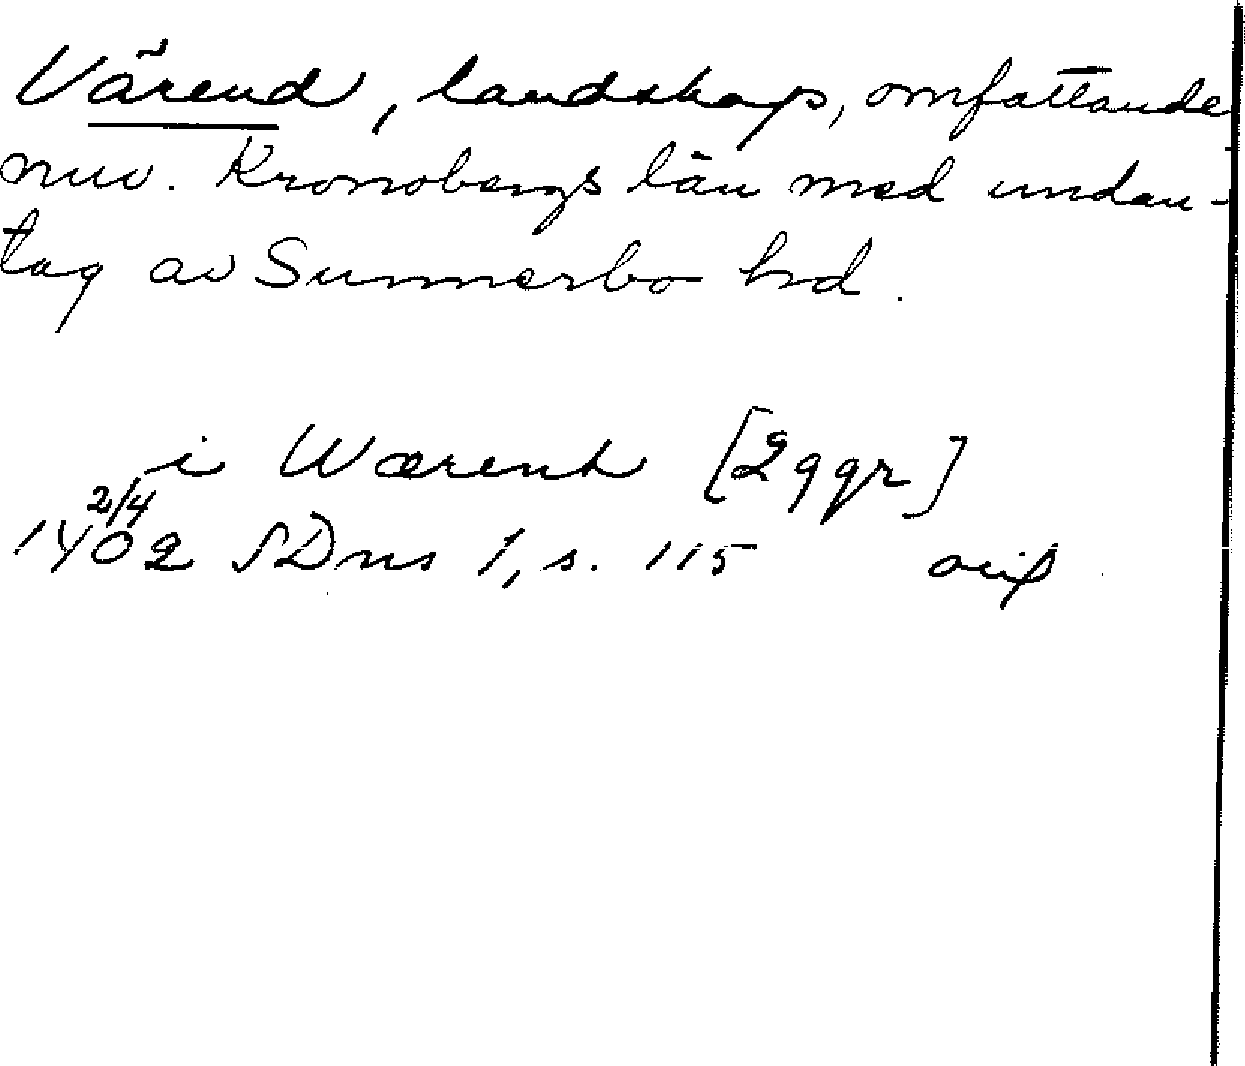 Värend, landskap, omfattande
nuv. Kronobergs län med undan-
tag av Sunnerbo hd.
i Wærent [2 ggr]
2/4
1402 SDns 1, s. 115 avs